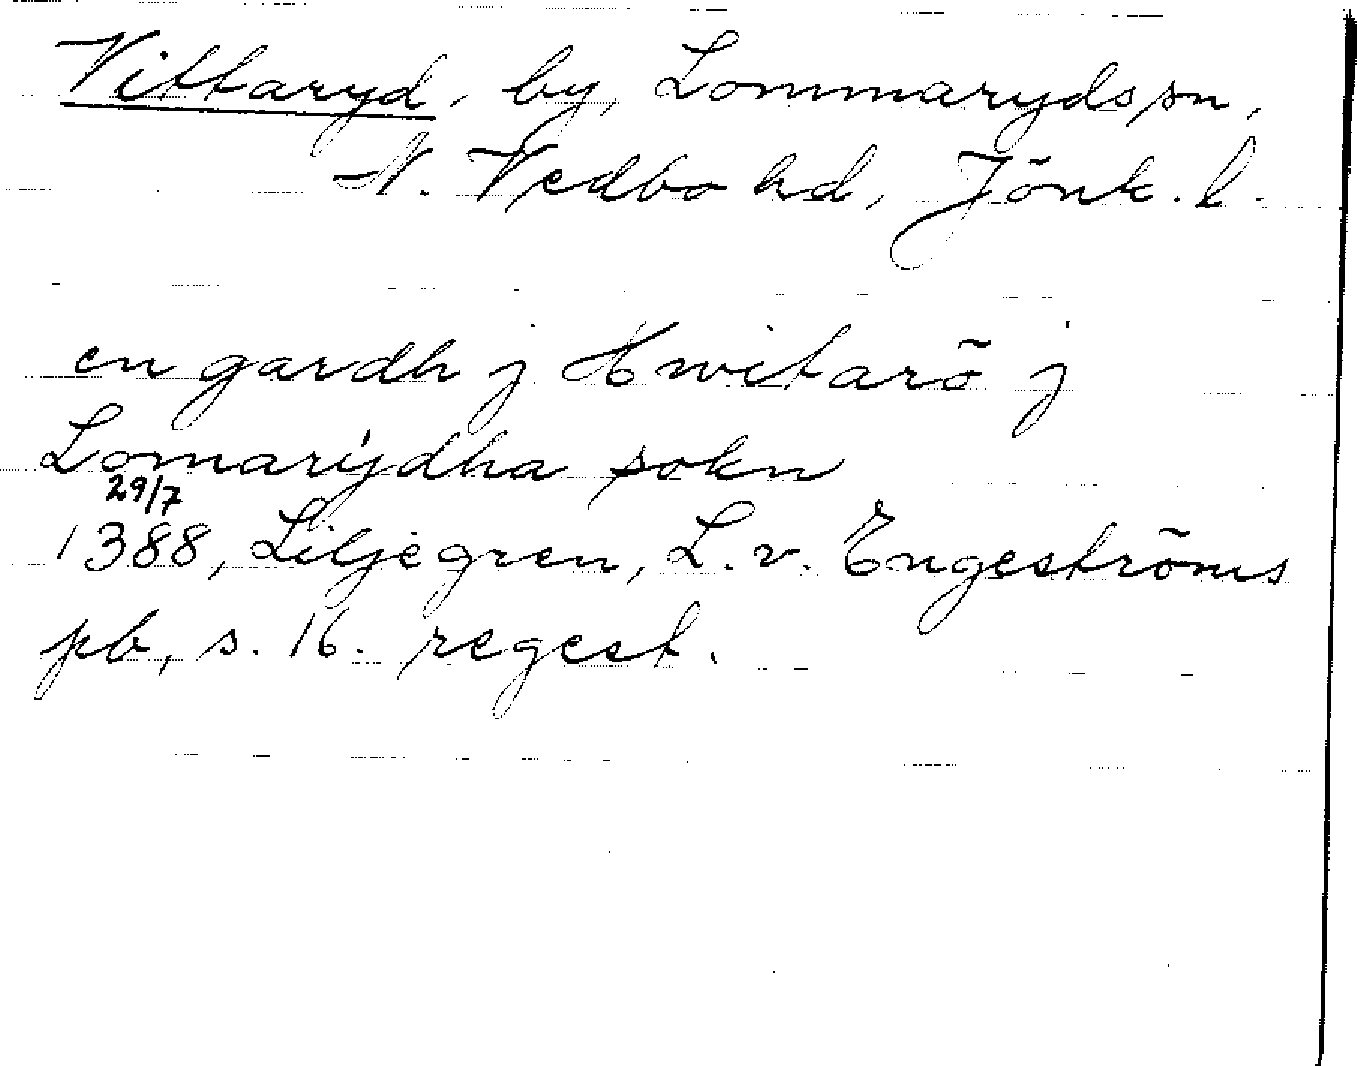 Vittaryd, by, Lommaryds sn,
N. Vedbo hd, Jönk. l.
en gardh j Hwitarö j
Lomarÿdha sokn
29/7
1388, Liljegren, L. v. Engeströms
pb, s. 16. regest.